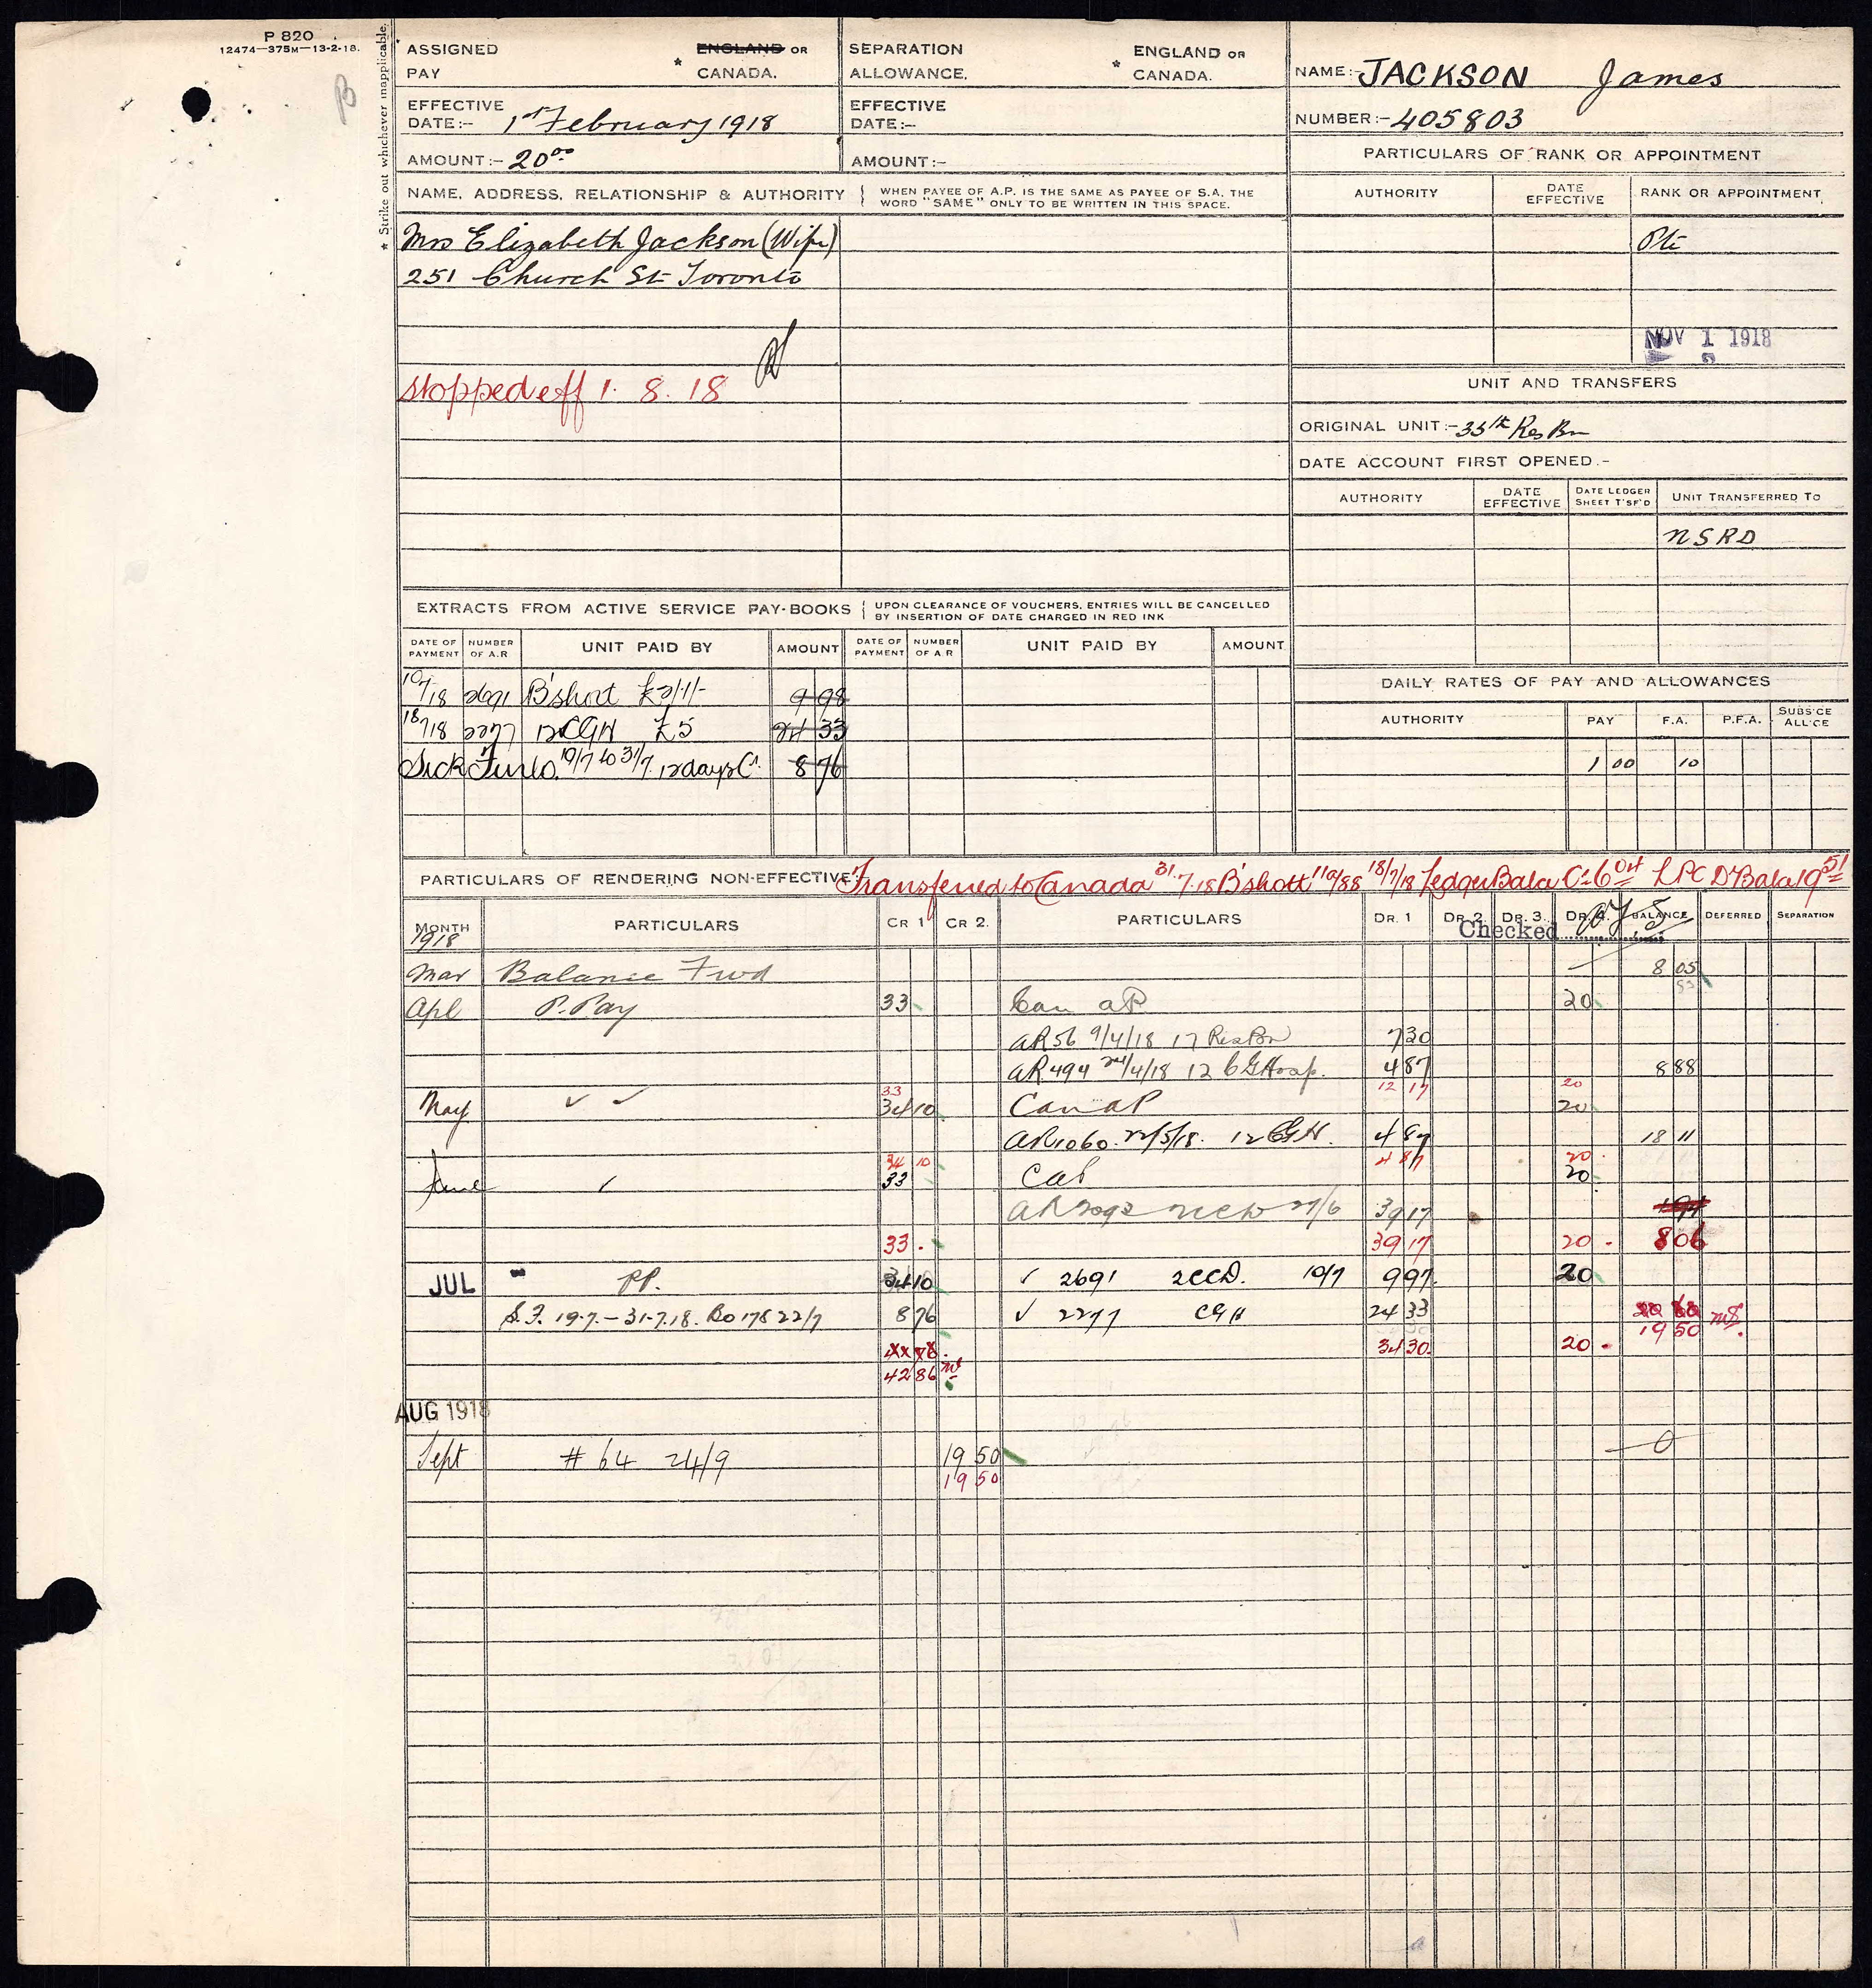 P 820
12474—375M—13-2-18.
* Strike out whichever inapplicable.
B
ASSIGNED PAY * ENGLAND OR CANADA.
SEPARATION ALLOWANCE, * ENGLAND OR CANADA.
NAME:- JACKSON James
EFFECTIVE DATE:- 1st February 1918
EFFECTIVE DATE:-
NUMBER:- 405803
AMOUNT:- 20.00
AMOUNT:-
PARTICULARS OF RANK OR APPOINTMENT
NAME, ADDRESS, RELATIONSHIP & AUTHORITY
WHEN PAYEE OF A.P. IS THE SAME AS PAYEE OF S.A. THE
WORD "SAME" ONLY TO BE WRITTEN IN THIS SPACE.
AUTHORITY DATE EFFECTIVE RANK OR APPOINTMENT
Mrs Elizabeth Jackson (Wife)
251 Church St Toronto
Pte
NOV 1 1918
stopped eff 1. 8. 18
UNIT AND TRANSFERS
ORIGINAL UNIT:- 35th Res Bn
DATE ACCOUNT FIRST OPENED.-
AUTHORITY DATE EFFECTIVE DATE LEDGER SHEET T'SF'D UNIT TRANSFERRED TO
NSRD
EXTRACTS FROM ACTIVE SERVICE PAY-BOOKS
UPON CLEARANCE OF VOUCHERS, ENTRIES WILL BE CANCELLED
BY INSERTION OF DATE CHARGED IN RED INK
DATE OF PAYMENT NUMBER OF A.R UNIT PAID BY AMOUNT DATE OF PAYMENT NUMBER OF A.R UNIT PAID BY AMOUNT
10/7/18 2691 B'shott £2/1/- 9 98
18/7/18 2277 12CGH £5 24 33
Sick Furlo. 19/7 to 31/7. 12 days 8 76
DAILY RATES OF PAY AND ALLOWANCES
AUTHORITY PAY F.A. P.F.A. SUBS'CE ALL'CE
1 00 10
PARTICULARS OF RENDERING NON-EFFECTIVE:- Transferred to Canada 31.7.18 B'shott 110/88 18/7/18 Ledger Bala Cr 6 04 LPC Dr Bala 19 51
MONTH PARTICULARS CR 1 CR 2. PARTICULARS DR. 1 DR. 2. DR. 3. DR. 4. BALANCE DEFERRED SEPARATION
1918
Checked
Mar Balance Fwd 8 05
Apl P. Pay 33 Can AP 20
AR 56 9/4/18 17 Res Bn 7 30
AR 494 24/4/18 12 CGHosp. 4 87 8 88
33 12 17 20
May ✓ ✓ 34 10 Can AP 20
AR 1060. 22/5/18. 12 CGH. 4 87 18 11
34 10 4 87 20
June ✓ 33 CaP 20
AR 2092 27/6 39 17
33. 39 17 20 - 8 06
JUL " PP. 34 10 ✓ 2691 2CCD. 10/7 9 97 20
S.F. 19.7.—31.7.18. Bo 178 22/7 8 76 ✓ 2277 CGH 24 33
19 50
34 30 20 -
42 86
AUG 1918
Sept # 64 24/9 19 50 0
19 50